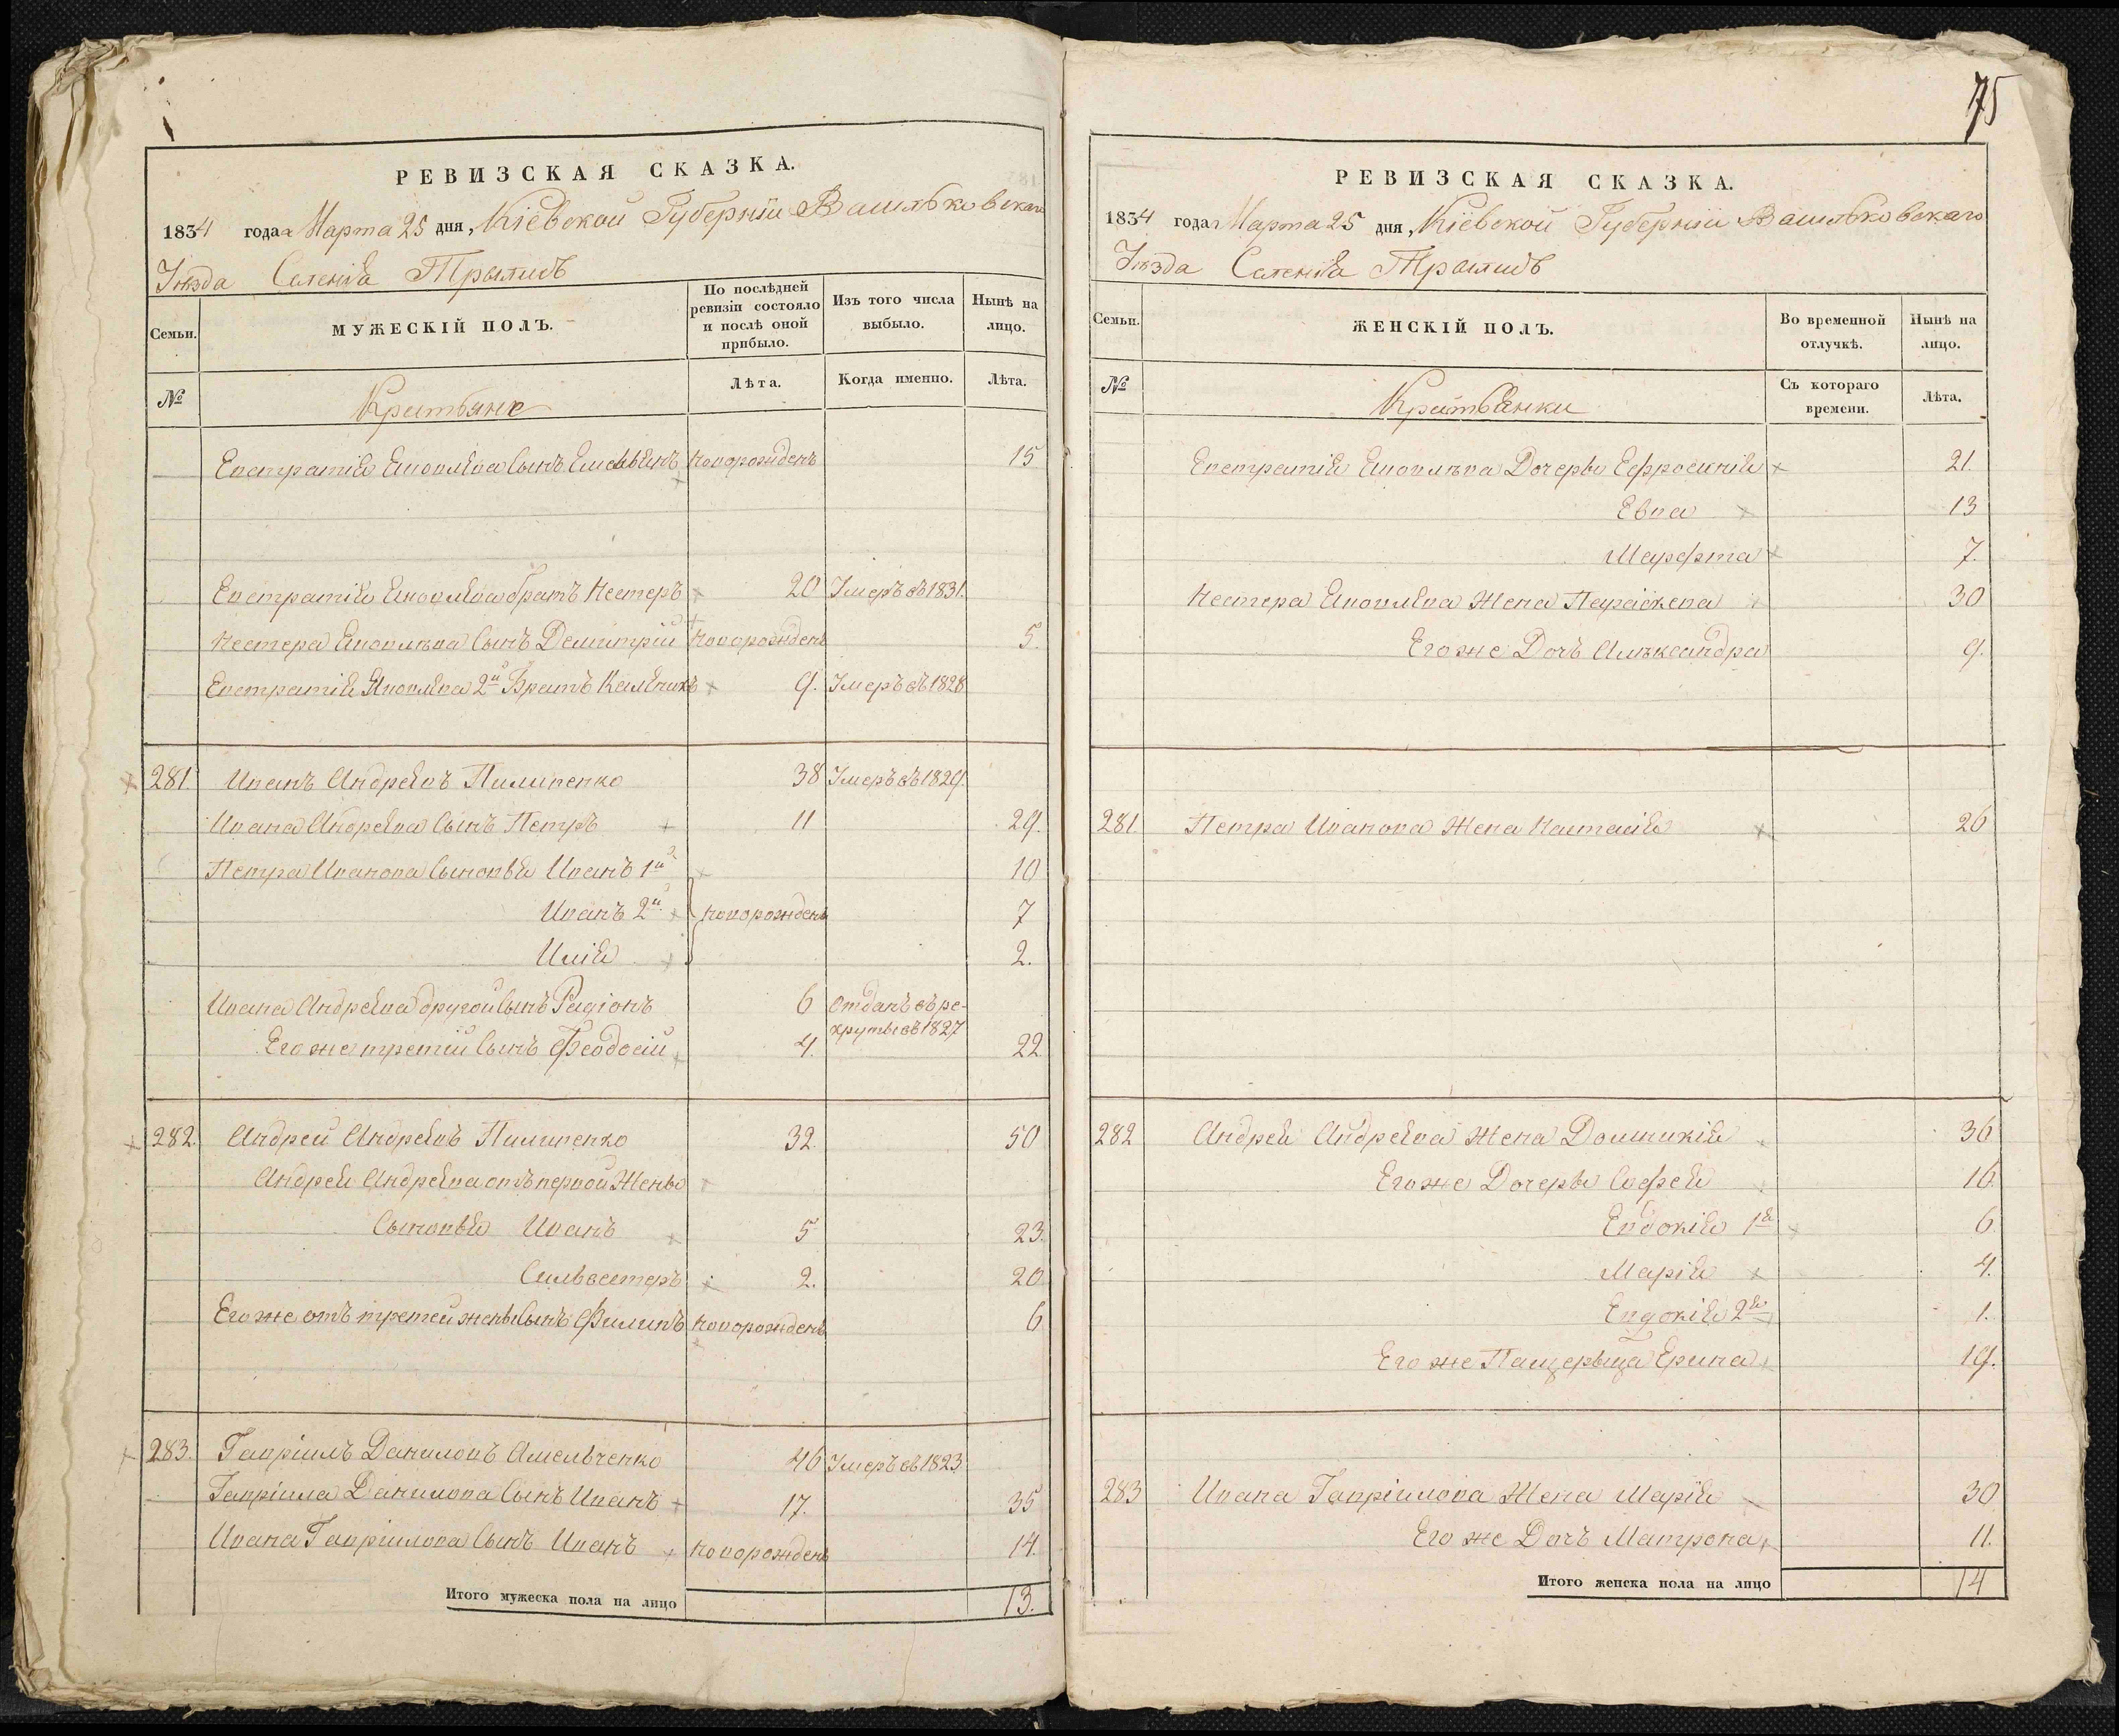 РЕВИЗСКАЯ СКАЗКА.
1834 года Марта 25 дня, Кіевской Губерніи Васильковскаго
Уѣзда Селенія Трылисъ
Семьи. МУЖЕСКІЙ ПОЛЪ. По послѣдней ревизіи состояло и послѣ оной прибыло. Изъ того числа выбыло. Нынѣ на лицо.
№ Крестьяне Лѣта. Когда именно. Лѣта.
Евстратія Яковлева Сынъ Емельянъ новорожденъ 15
Евстратія Яковлева братъ Нестеръ 20 Умеръ въ 1831.
Нестера Яковлева Сынъ Демитрій новорожденъ 5.
Евстратія Яковлева 2й Братъ Калѣникъ 9. Умеръ въ 1828
281. Иванъ Андреевъ Пилипенко 38 Умеръ въ 1829.
Ивана Андреева Сынъ Петръ 11 29.
Петра Иванова Сыновья Иванъ 1й 10
Иванъ 2й новорожденъ 7
Илія 2.
Ивана Андреева другой Сынъ Радіонъ 6 отданъ въ ре-
круты въ 1827
Его же третій Сынъ Феодосій 4. 22
282. Андрей Андреевъ Пилипенко 32. 50
Андрея Андреева отъ первой Жены
Сыновья Иванъ 5 23.
Сильвестеръ 2. 20
Его же отъ третей жены Сынъ Филипъ новорожденъ 6
283. Гавріилъ Даниловъ Амельченко 46 Умеръ въ 1823.
Гавріила Данилова Сынъ Иванъ 17. 35
Ивана Гавріилова Сынъ Иванъ новорожденъ 14.
Итого мужеска пола на лицо 13.
75
РЕВИЗСКАЯ СКАЗКА.
1834 года Марта 25 дня, Кіевской Губерніи Васильковскаго
Уѣзда Селенія Трылисъ
Семьи. ЖЕНСКІЙ ПОЛЪ. Во временной отлучкѣ. Нынѣ на лицо.
№ Крестьянки Съ котораго времени. Лѣта.
Евстратія Яковлева Дочеры Ефросинія 21.
Евва 13
Марфта 7.
Нестера Яковлева Жена Параскева 30
Его же Дочъ Алѣксандра 9.
281. Петра Иванова Жена Настасія 26
282 Андрея Андреева Жена Домникія 36
Его же Дочеры Софея 16.
Евдокія 1я 6
Марія 4.
Евдокія 2я 1.
Его же Пащерыца Ерина 19.
283 Ивана Гавріилова Жена Марія 30
Его же Дочъ Матрона 11.
Итого женска пола на лицо 14